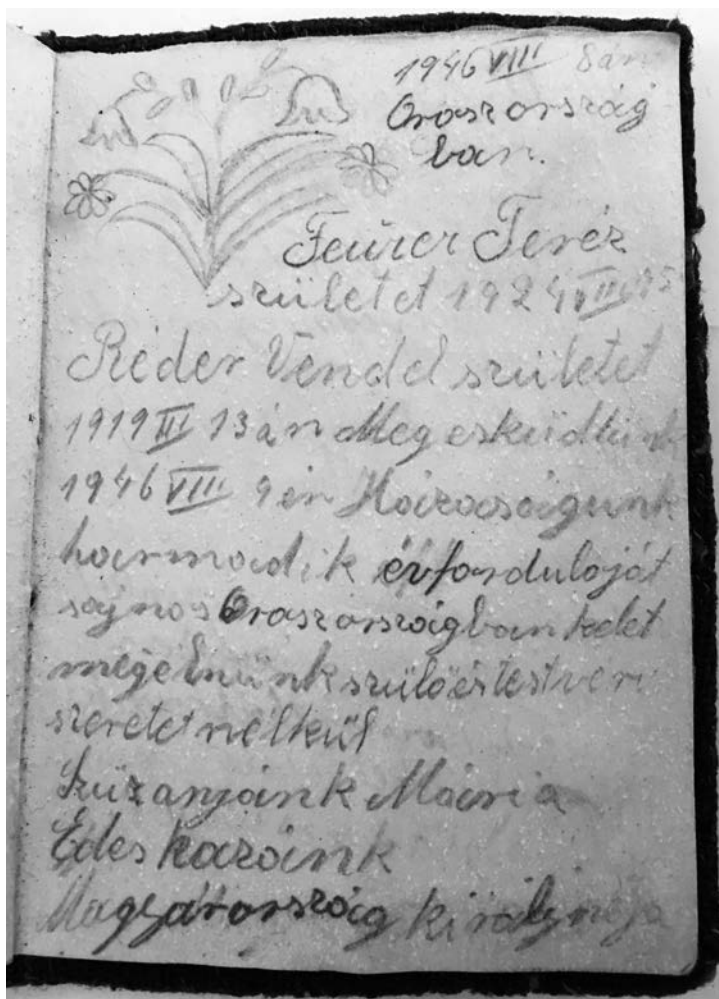 1946 VIII 8án
Oroszország
ban.
Feurer Teréz
születet 1924 VIII 15
Réder Vendel születet
1919 III 13án Meg esküdtünk
1946 VIII 4én Házaságunk
harmadik évfordulóját
sajnos Oroszországban kelet
megélnünk szülö és testvéri
szeretet nélkül
Szüzanyánk Mária
Édes hazánk
Magyarország királynöja